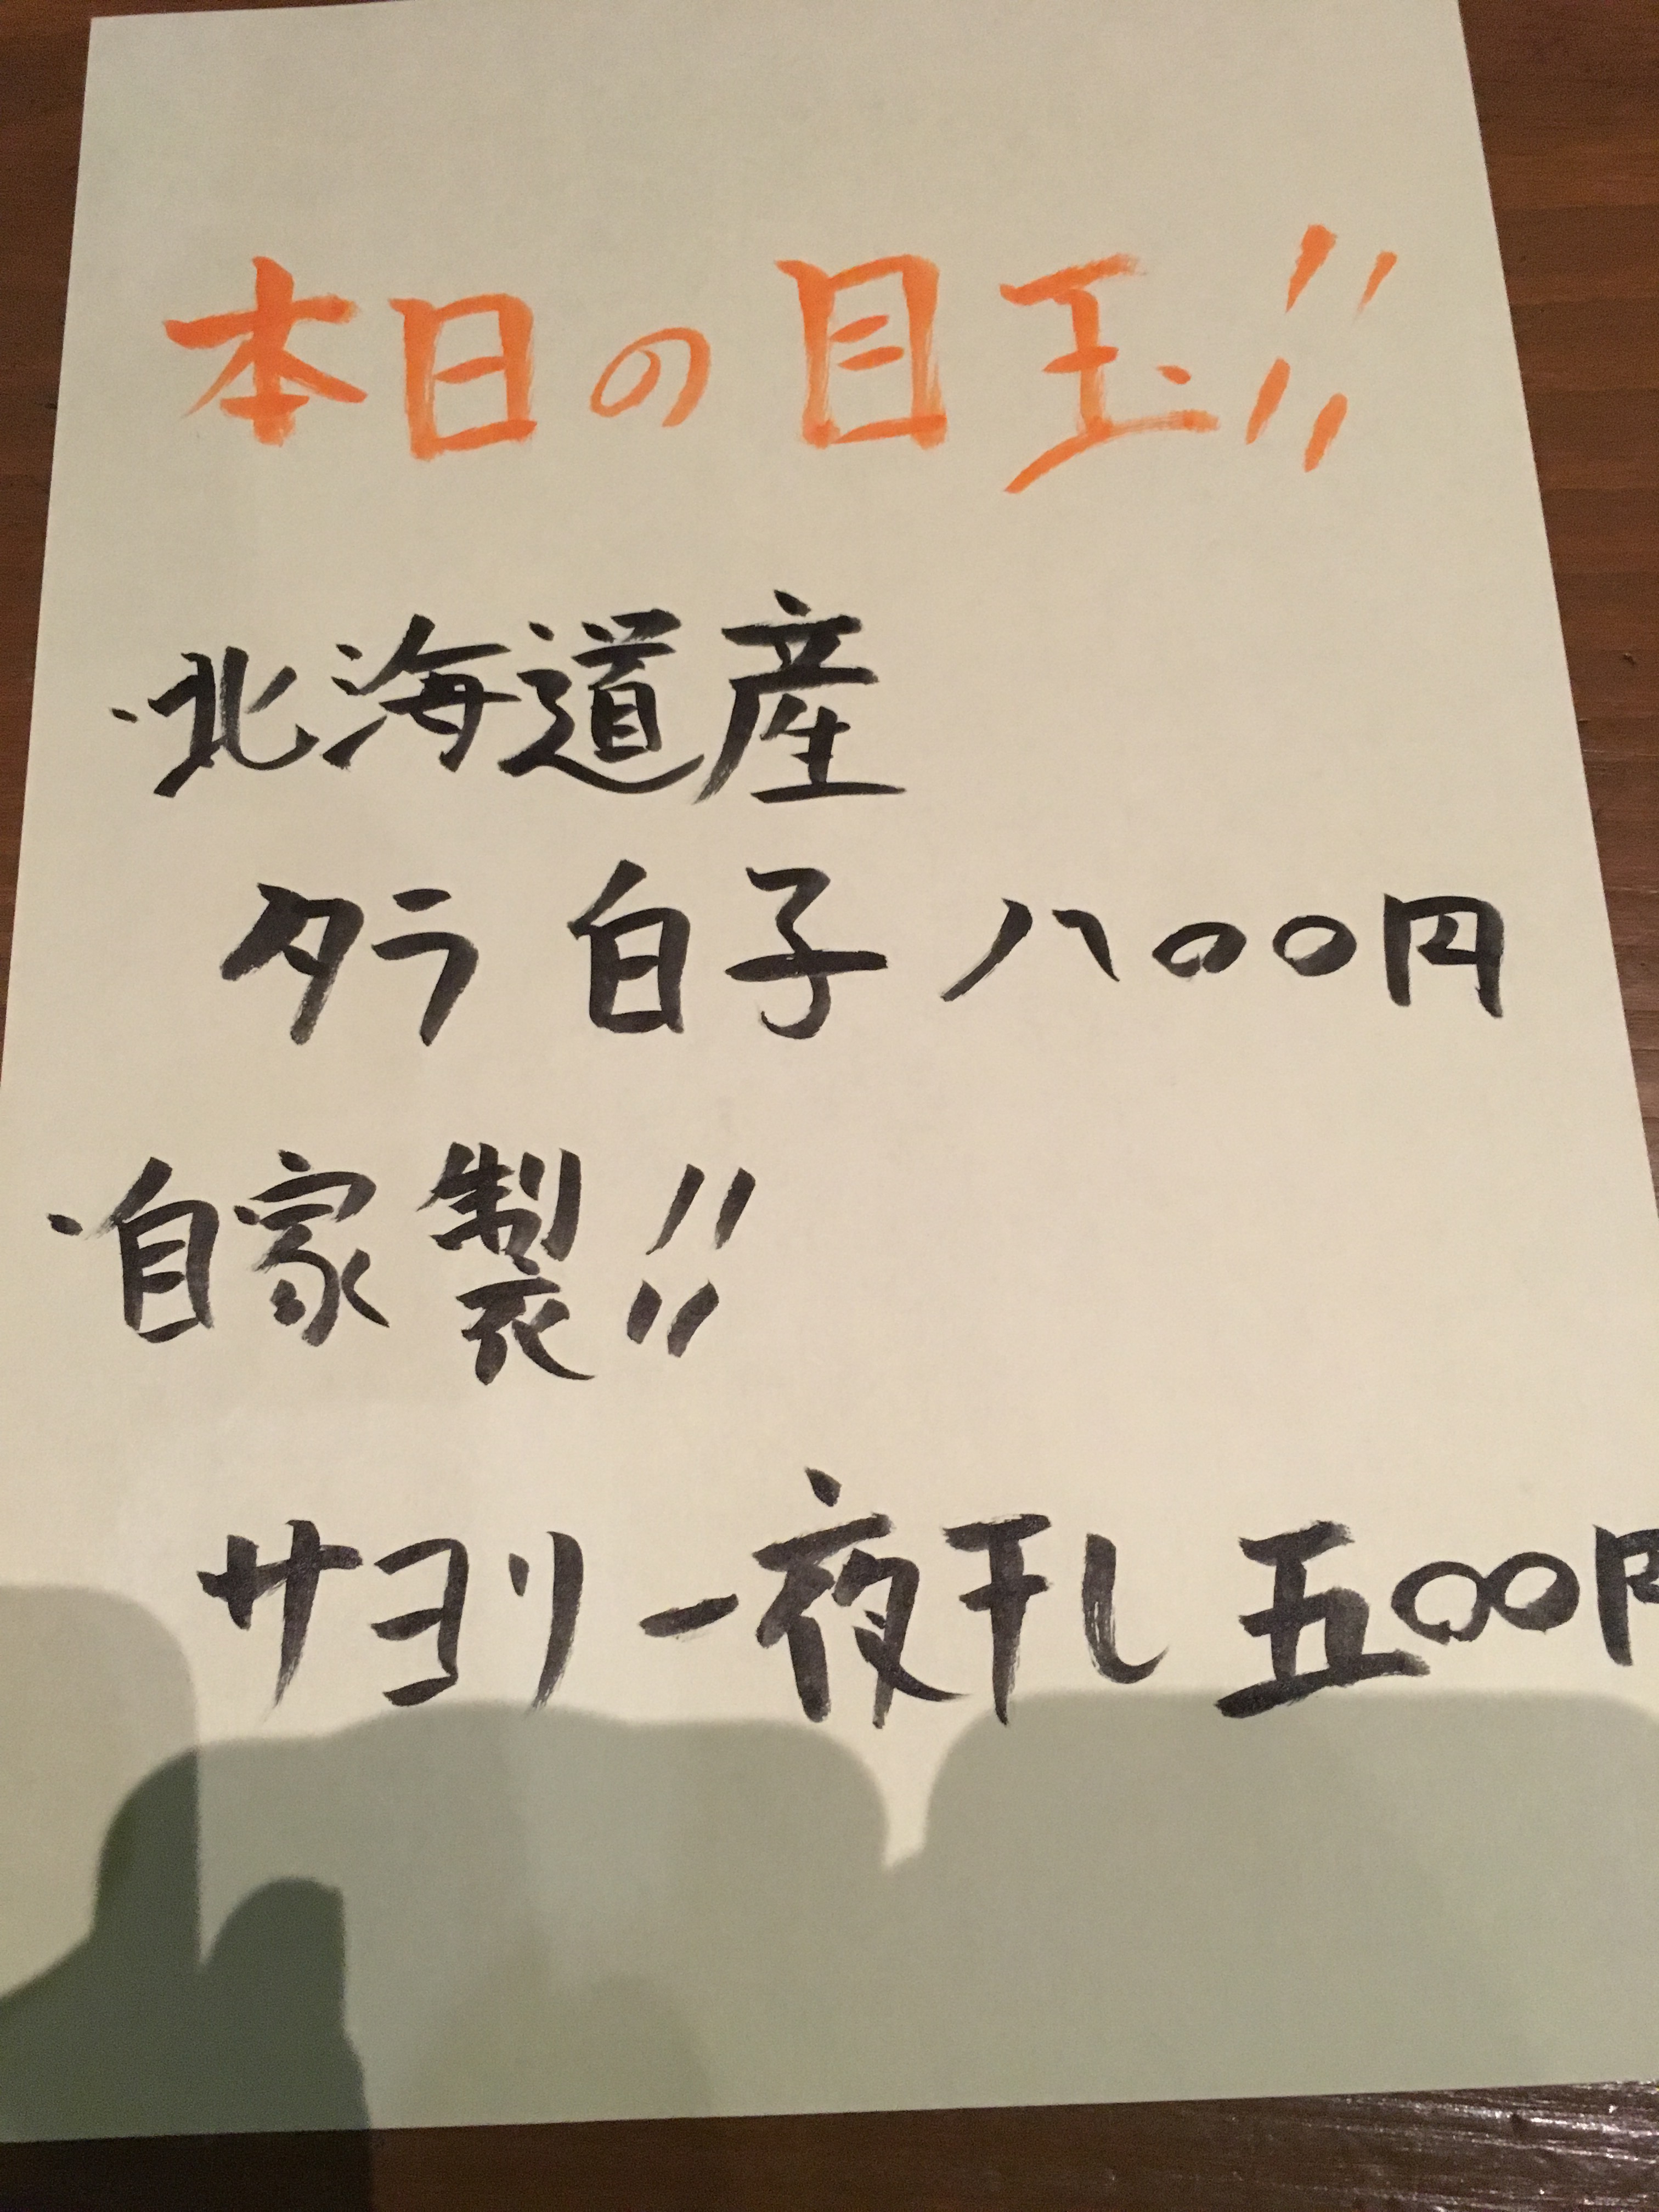 本日の目玉!!
・北海道産
タラ 白子 八〇〇円
・自家製!!
サヨリ一夜干し 五〇〇円